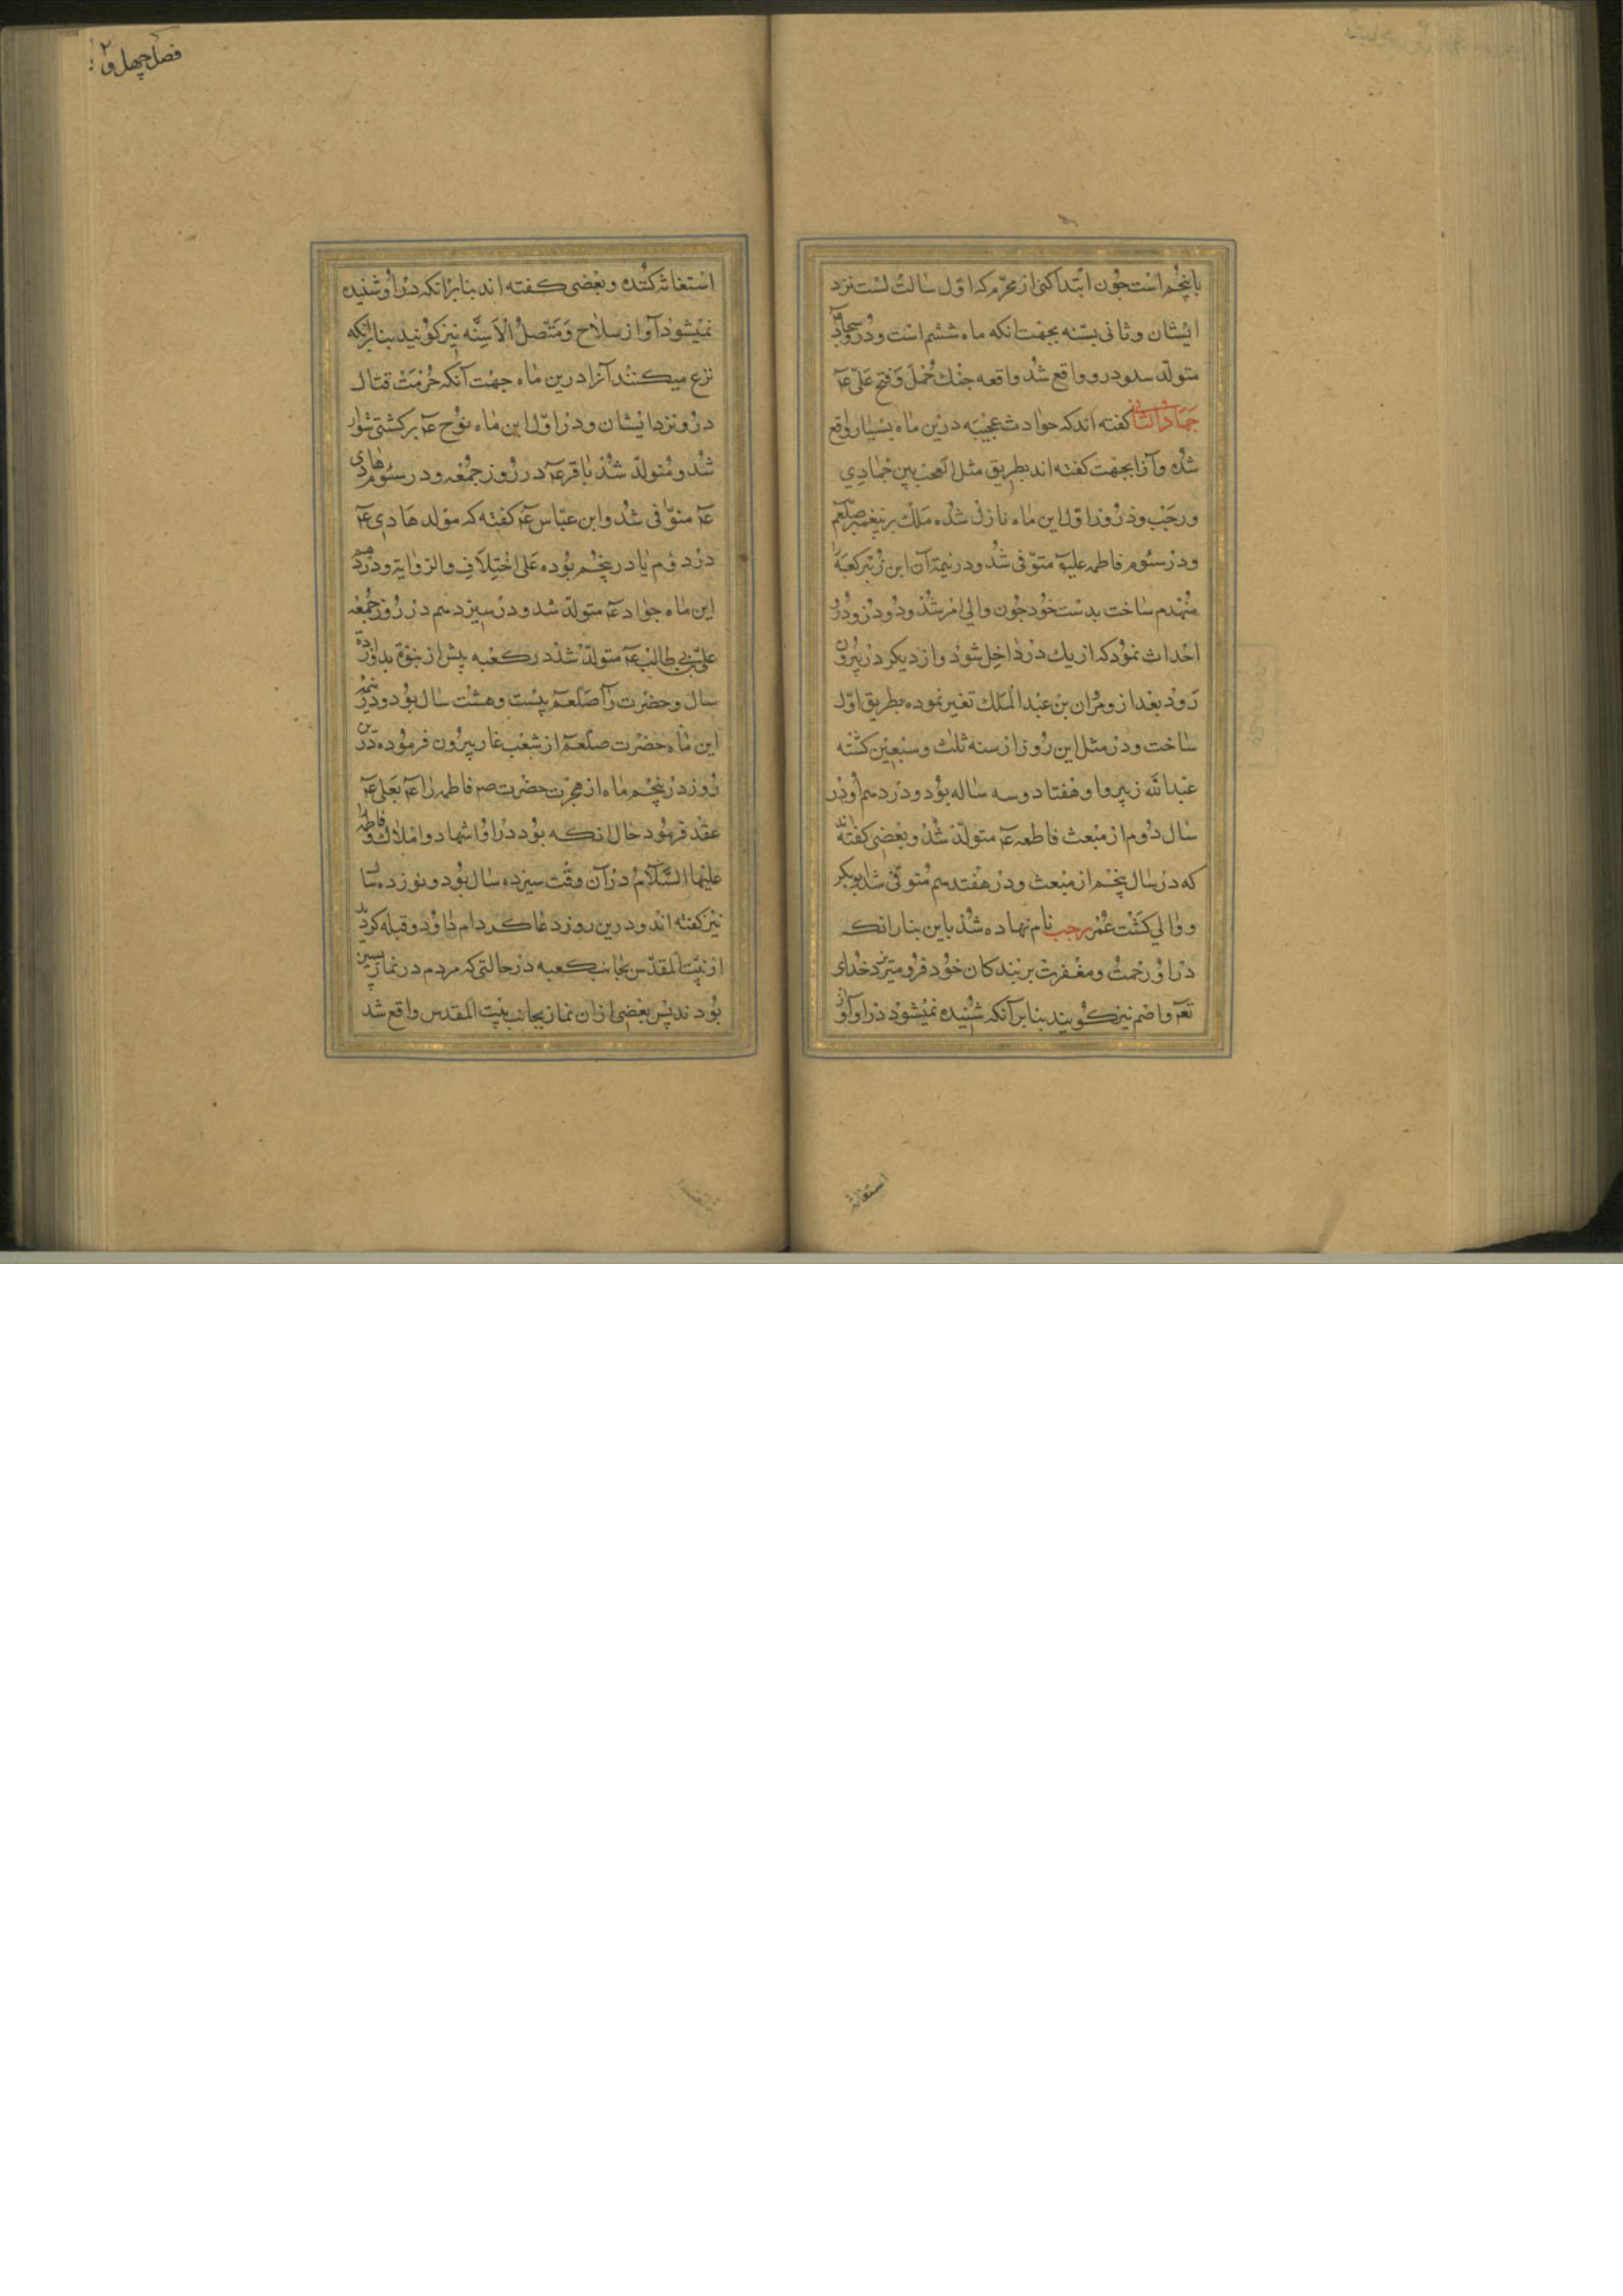 باپنجم است چون ابتدا کنی از محرم که اول سالت است نزد
ایشان و ثانی بسته بجهت انکه ماه ششم است و در و سجاد عۤ
متولد شد و درو واقع شد واقعه جنك جمل و فتح علی عۤ
جمادالثانی کفته اند که حوادث عجیبه درین ماه بسیار واقع
شده و آنرا بجهت کفته اند بطریق مثل العجب بین جمادی
ورجب و در روز اول این ماه نازل شده ملك بر پیغمبر صلعم
و در سئوم فاطمه علیهۤا متوفی شد و در نیمۀ آن ابن زبیر کعبه را
منهدم ساخت بدست خود چون والی امر شد و دو در و در و
احداث نمود که از یك در داخل شود و از دیکر در بیرون
رود بعد از و مران بن عبد الملك تغیر نموده بطریق اول
ساخت و در مثل این روز از سنه ثلث و سبعین کشته
عبد الله زبیر و او هفتاد و سه ساله بود و در دهم او در
سال دوم از مبعث فاطمه عۤ متولد شد و بعضی کفته اند
که در سال پنجم از مبعث و در هفتدهم متوفی شد ابوبکر
و والی کشت عمر رجب نام نهاده شد باین بنا برانکه
در او رحمت و مغفرت بر بندکان خود فرو میریزد خدای
تعۤ و اصم نیز کویند بنا بر آنکه شنیده نمیشود در او آواز
استغاثه
فصل چهل و ۲
استغاثه کننده و بعضی کفته اند بنا بر انکه در او شنیده
نمیشود آواز سلاح و متصل الاسنه نیز کویند بنا برانکه
نزع میکنند آنرا درین ماه جهت آنکه حرمت قتال
درو نزد ایشان و در اول این ماه نوح عۤ بر کشتی سوار
شد و متولد شد باقر عۤ در روز جمعه و در سئوم هادی
عۤ متوفی شد و ابن عباس عۤ کفته که مولد هادی عۤ
در دوم یا در پنجم بوده علی اختلاف الروایة و در دهم
این ماه جواد عۤ متولد شد و در سیزدهم در روز جمعه
علی بن ابی طالب عۤ متولد شد در کعبه پیش از نبوة بدوازده
سال و حضرت را صلعم بیست و هشت سال بود و در نیمه
این ماه حضرت صلعم از شعب غار بیرون فرموده درین
روز در پنجم ماه از هجرت حضرت صم فاطمه را عۤ بعلی عۤ
عقد فرمود حال انکه بود در او اشهاد و املاك و فاطمه را
علیها السلام در آن وقت سیزده سال بود و نوزده سال
نیز کفته اند و درین روز دعا کرد ام داود و قبله کردید
از بیت المقدس بجانب کعبه در حالتی که مردم در نماز پسین
بودند پس بعضی ازان نماز بجانب بیت المقدس واقع شد